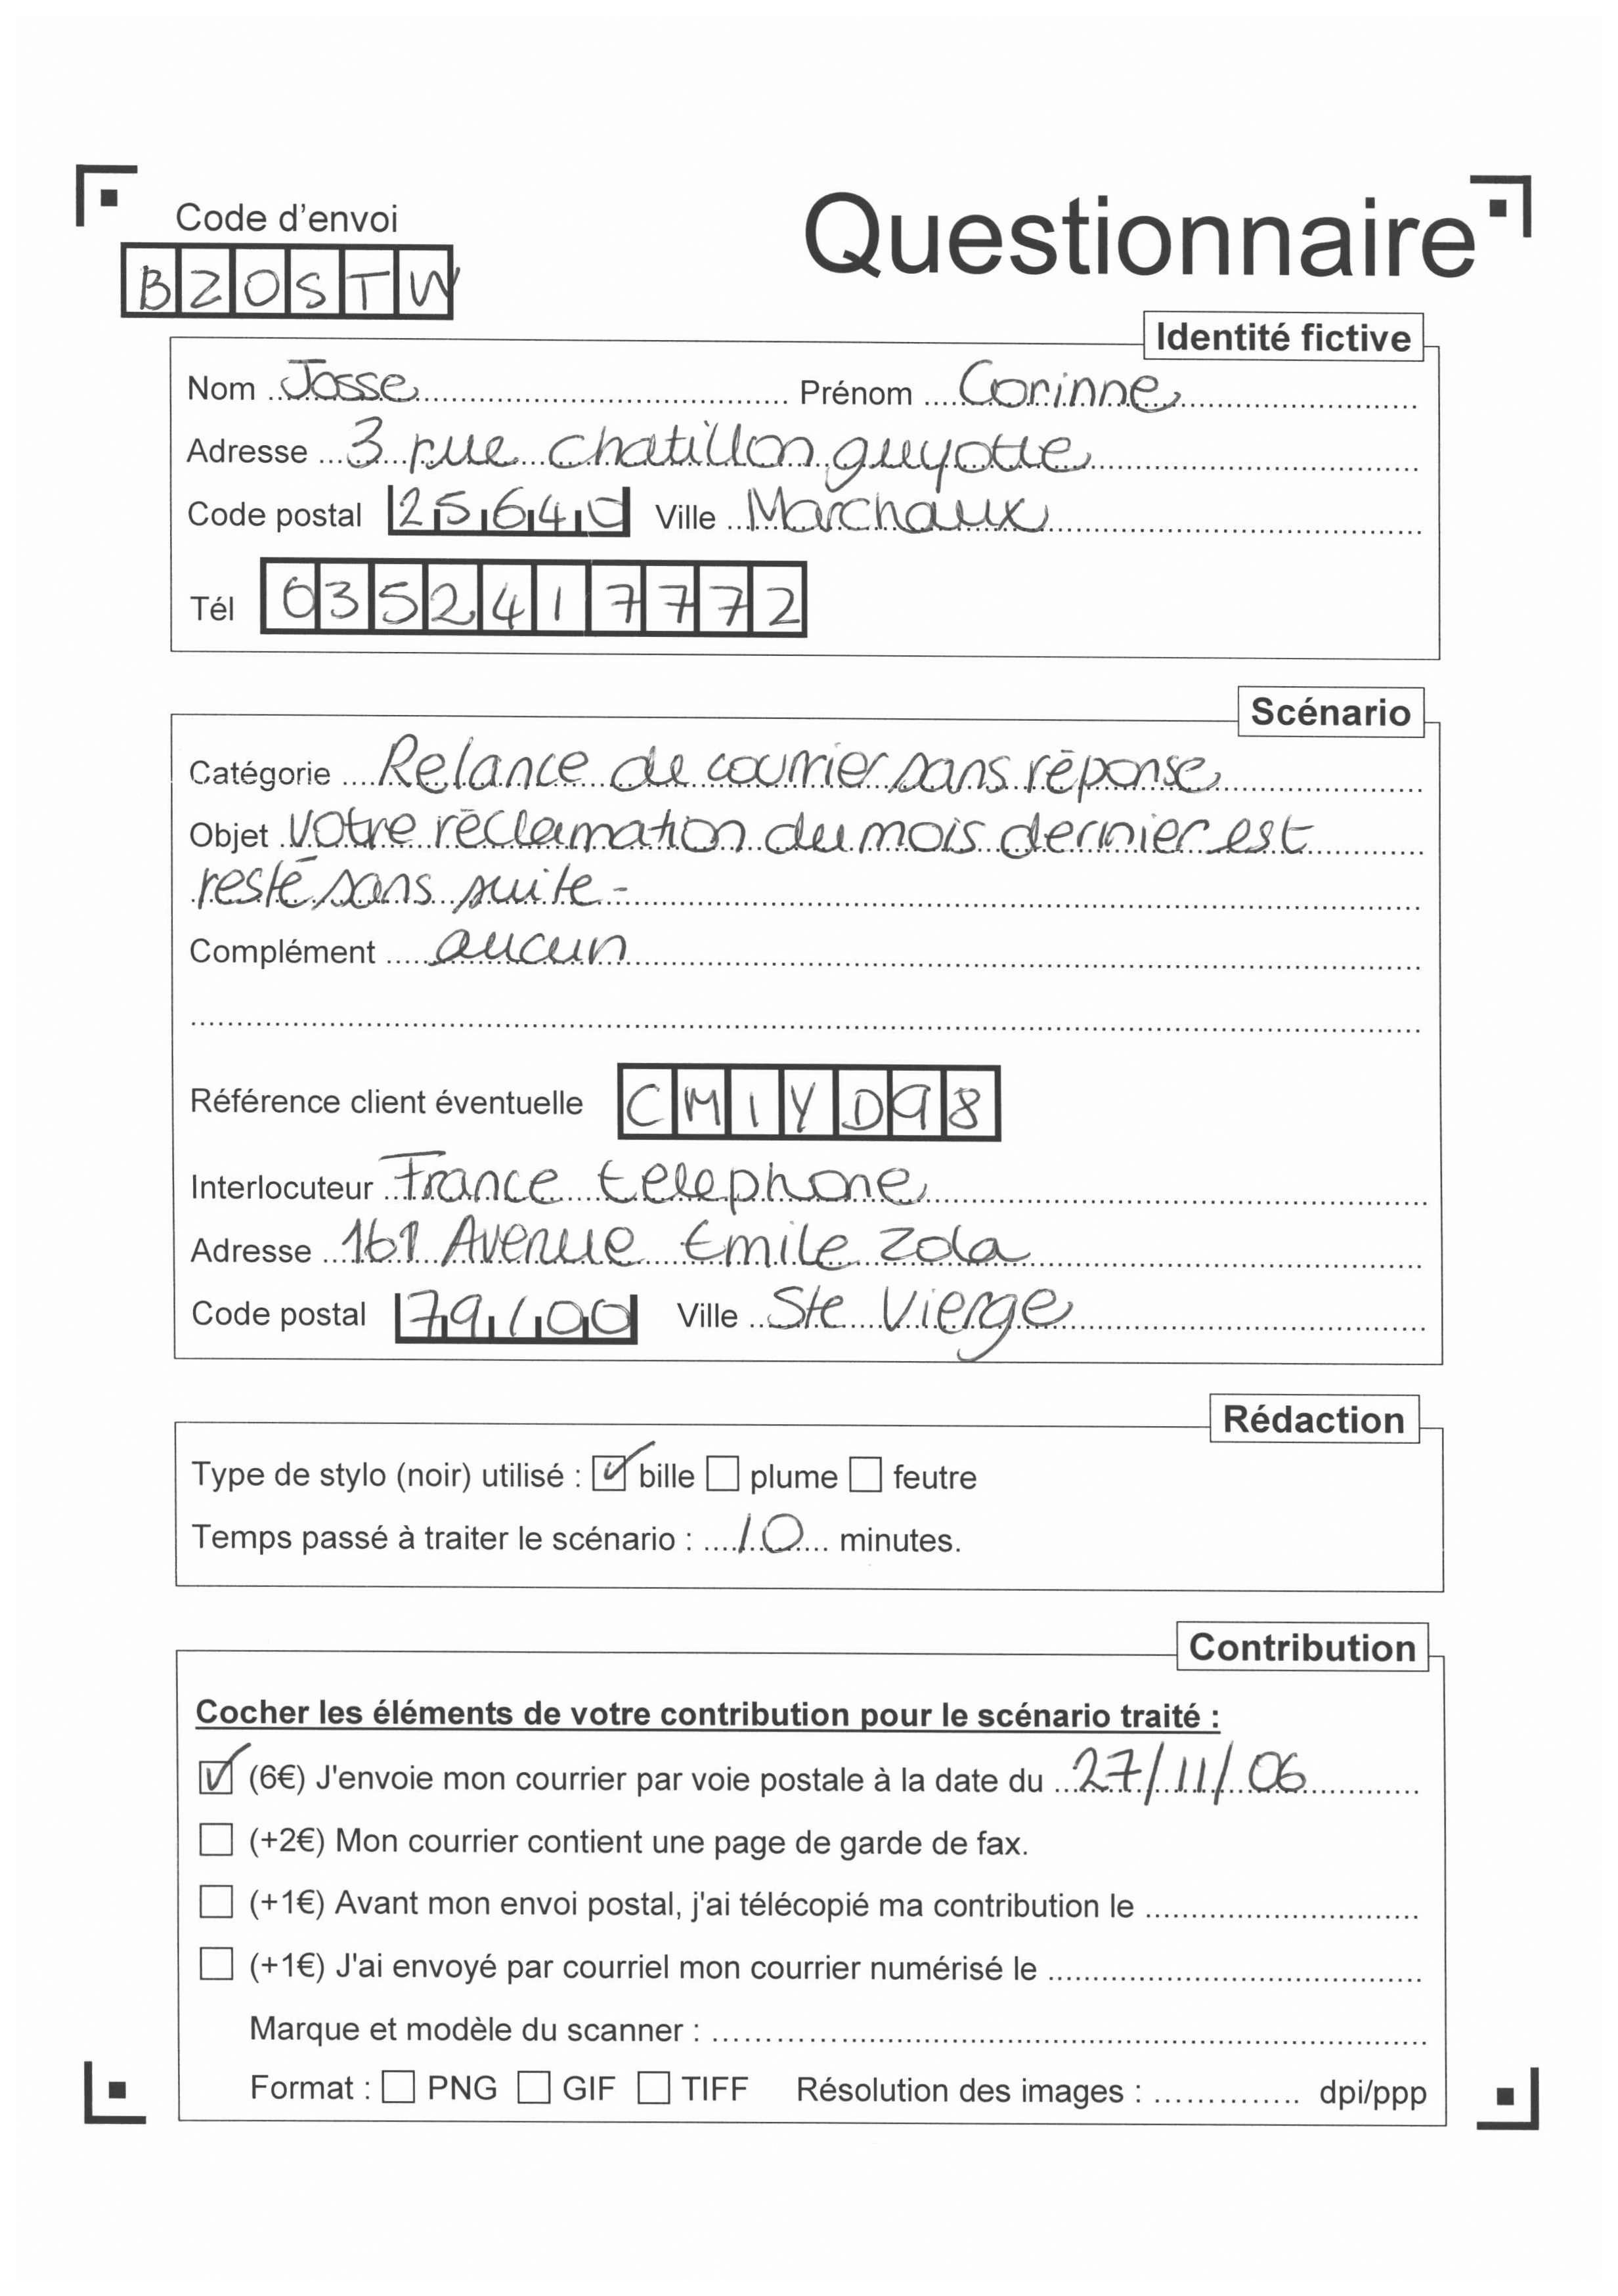 Code d'envoi
Questionnaire
BZOSTW
Identité fictive
Nom Josse Prénom Corinne
Adresse 3 rue chatillon guyotte
Code postal 25640 Ville Marchaux
Tél 0352417772
Scénario
Catégorie Relance de courrier sans réponse
Objet votre réclamation du mois dernier est
resté sans suite -
Complément aucun
Référence client éventuelle CMIYD98
Interlocuteur France telephone
Adresse 161 Avenue Emile Zola
Code postal 79100 Ville Ste Vierge
Rédaction
Type de stylo (noir) utilisé : bille plume feutre
Temps passé à traiter le scénario : 10 minutes.
Contribution
Cocher les éléments de votre contribution pour le scénario traité :
(6€) J'envoie mon courrier par voie postale à la date du 27/11/06
(+2€) Mon courrier contient une page de garde de fax.
(+1€) Avant mon envoi postal, j'ai télécopié ma contribution le
(+1€) J'ai envoyé par courriel mon courrier numérisé le
Marque et modèle du scanner :
Format : PNG GIF TIFF Résolution des images : dpi/ppp